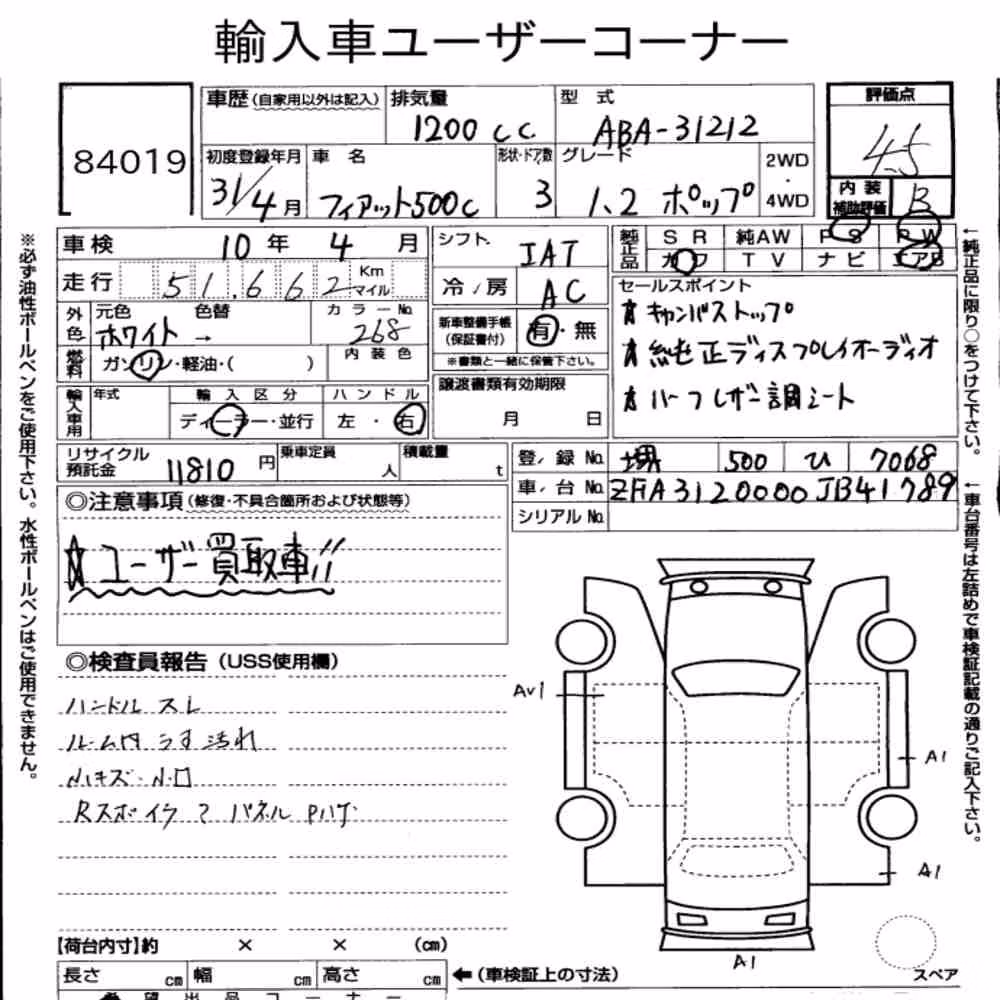 輸入車ユーザーコーナー
84019
車歴 (自家用以外は記入) 排気量 型式 評価点
1200 cc ABA-31212 4.5
初度登録年月 車名 形状・ドア数 グレード 2WD・4WD 内装補助評価
31/4月 フィアット500c 3 1.2 ポップ B
車検 10年 4月 シフト IAT 純正品 SR 純AW PS PW
走行 51,662 Km マイル 冷/房 AC カワ TV ナビ エアB
外色 元色 色替 カラーNo. 新車整備手帳(保証書付) 有・無 セールスポイント
ホワイト → 268 ※書類と一緒に保管下さい。
★キャンバストップ
★純正ディスプレイオーディオ
★ハーフレザー調シート
燃料 ガソリン・軽油・( ) 内装色
譲渡書類有効期限
月 日
輸入車用 年式 輸入区分 ハンドル
ディーラー・並行 左・右
リサイクル預託金 11810円 乗車定員 人 積載量 t
登/録No. 堺 500 ひ 7068
車/台No. ZFA3120000JB41789
シリアルNo.
◎注意事項(修復・不具合箇所および状態等)
☆ユーザー買取車!!
◎検査員報告(USS使用欄)
ハンドル スレ
ルーム内 うす汚れ
小キズ・小凹
Rスポイラ
パネル Pハゲ
AV1
A1
A1
A1
スペア
【荷台内寸】約 × × (cm)
長さ cm 幅 cm 高さ cm ←(車検証上の寸法)
希望出品コーナー
※必ず油性ボールペンをご使用下さい。水性ボールペンはご使用できません。
←純正品に限り○をつけて下さい。
←車台番号は左詰めで車検証記載の通りご記入下さい。